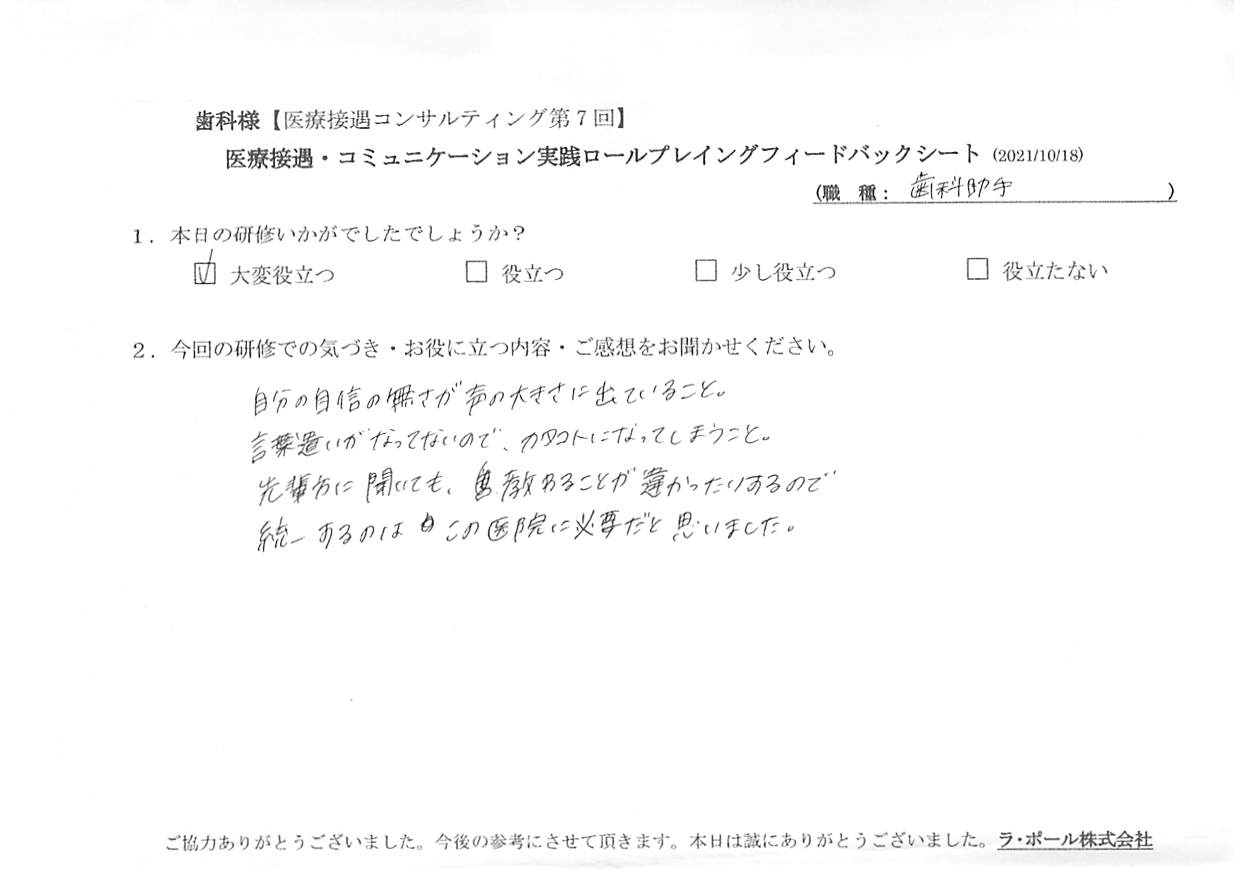 歯科様【医療接遇コンサルティング第７回】
医療接遇・コミュニケーション実践ロールプレイングフィードバックシート (2021/10/18)
(職 種： 歯科助手 )
１．本日の研修いかがでしたでしょうか？
☑ 大変役立つ □ 役立つ □ 少し役立つ □ 役立たない
２．今回の研修での気づき・お役に立つ内容・ご感想をお聞かせください。
自分の自信の無さが声の大きさに出ていること。
言葉遣いがなってないので、カタコトになってしまうこと。
先輩方に聞いても、教わることが違かったりするので
統一するのはこの医院に必要だと思いました。
ご協力ありがとうございました。今後の参考にさせて頂きます。本日は誠にありがとうございました。ラ・ポール株式会社